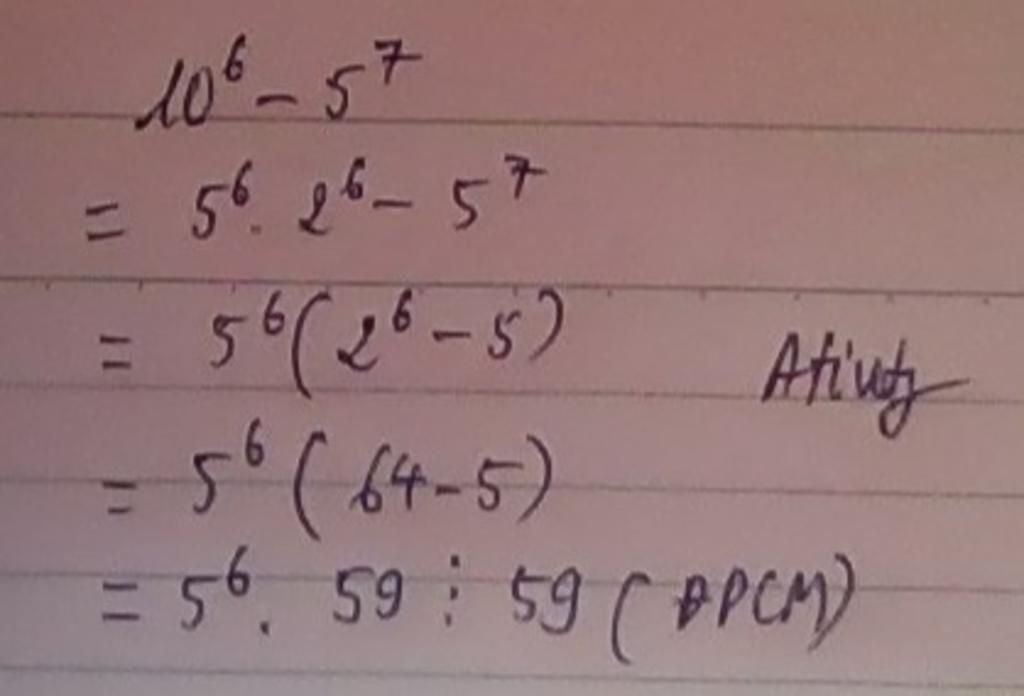 10⁶ - 5⁷
= 5⁶. 2⁶ - 5⁷
= 5⁶(2⁶ - 5)
= 5⁶(64 - 5)
= 5⁶. 59 ⋮ 59 (ĐPCM)